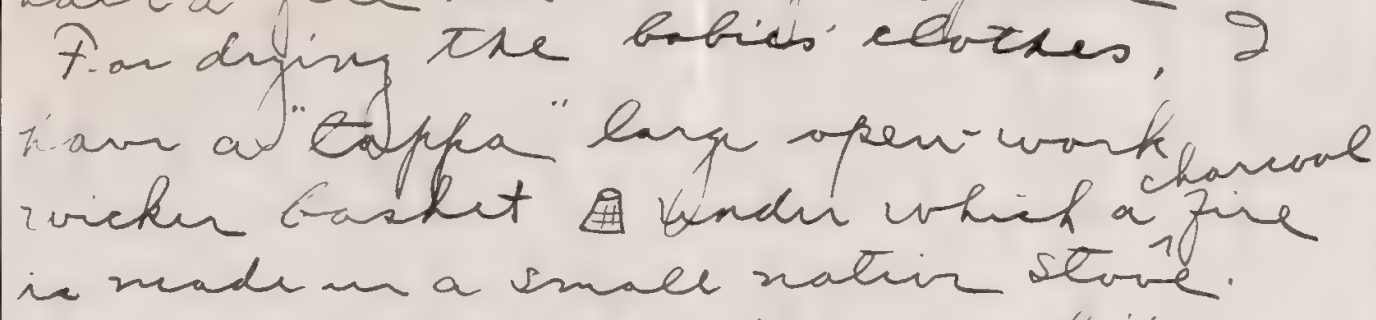 For drying the babies' clothes, I
have a "tappa" large open-work
wicker basket under which a charcoal fire
is made in a small native stove.